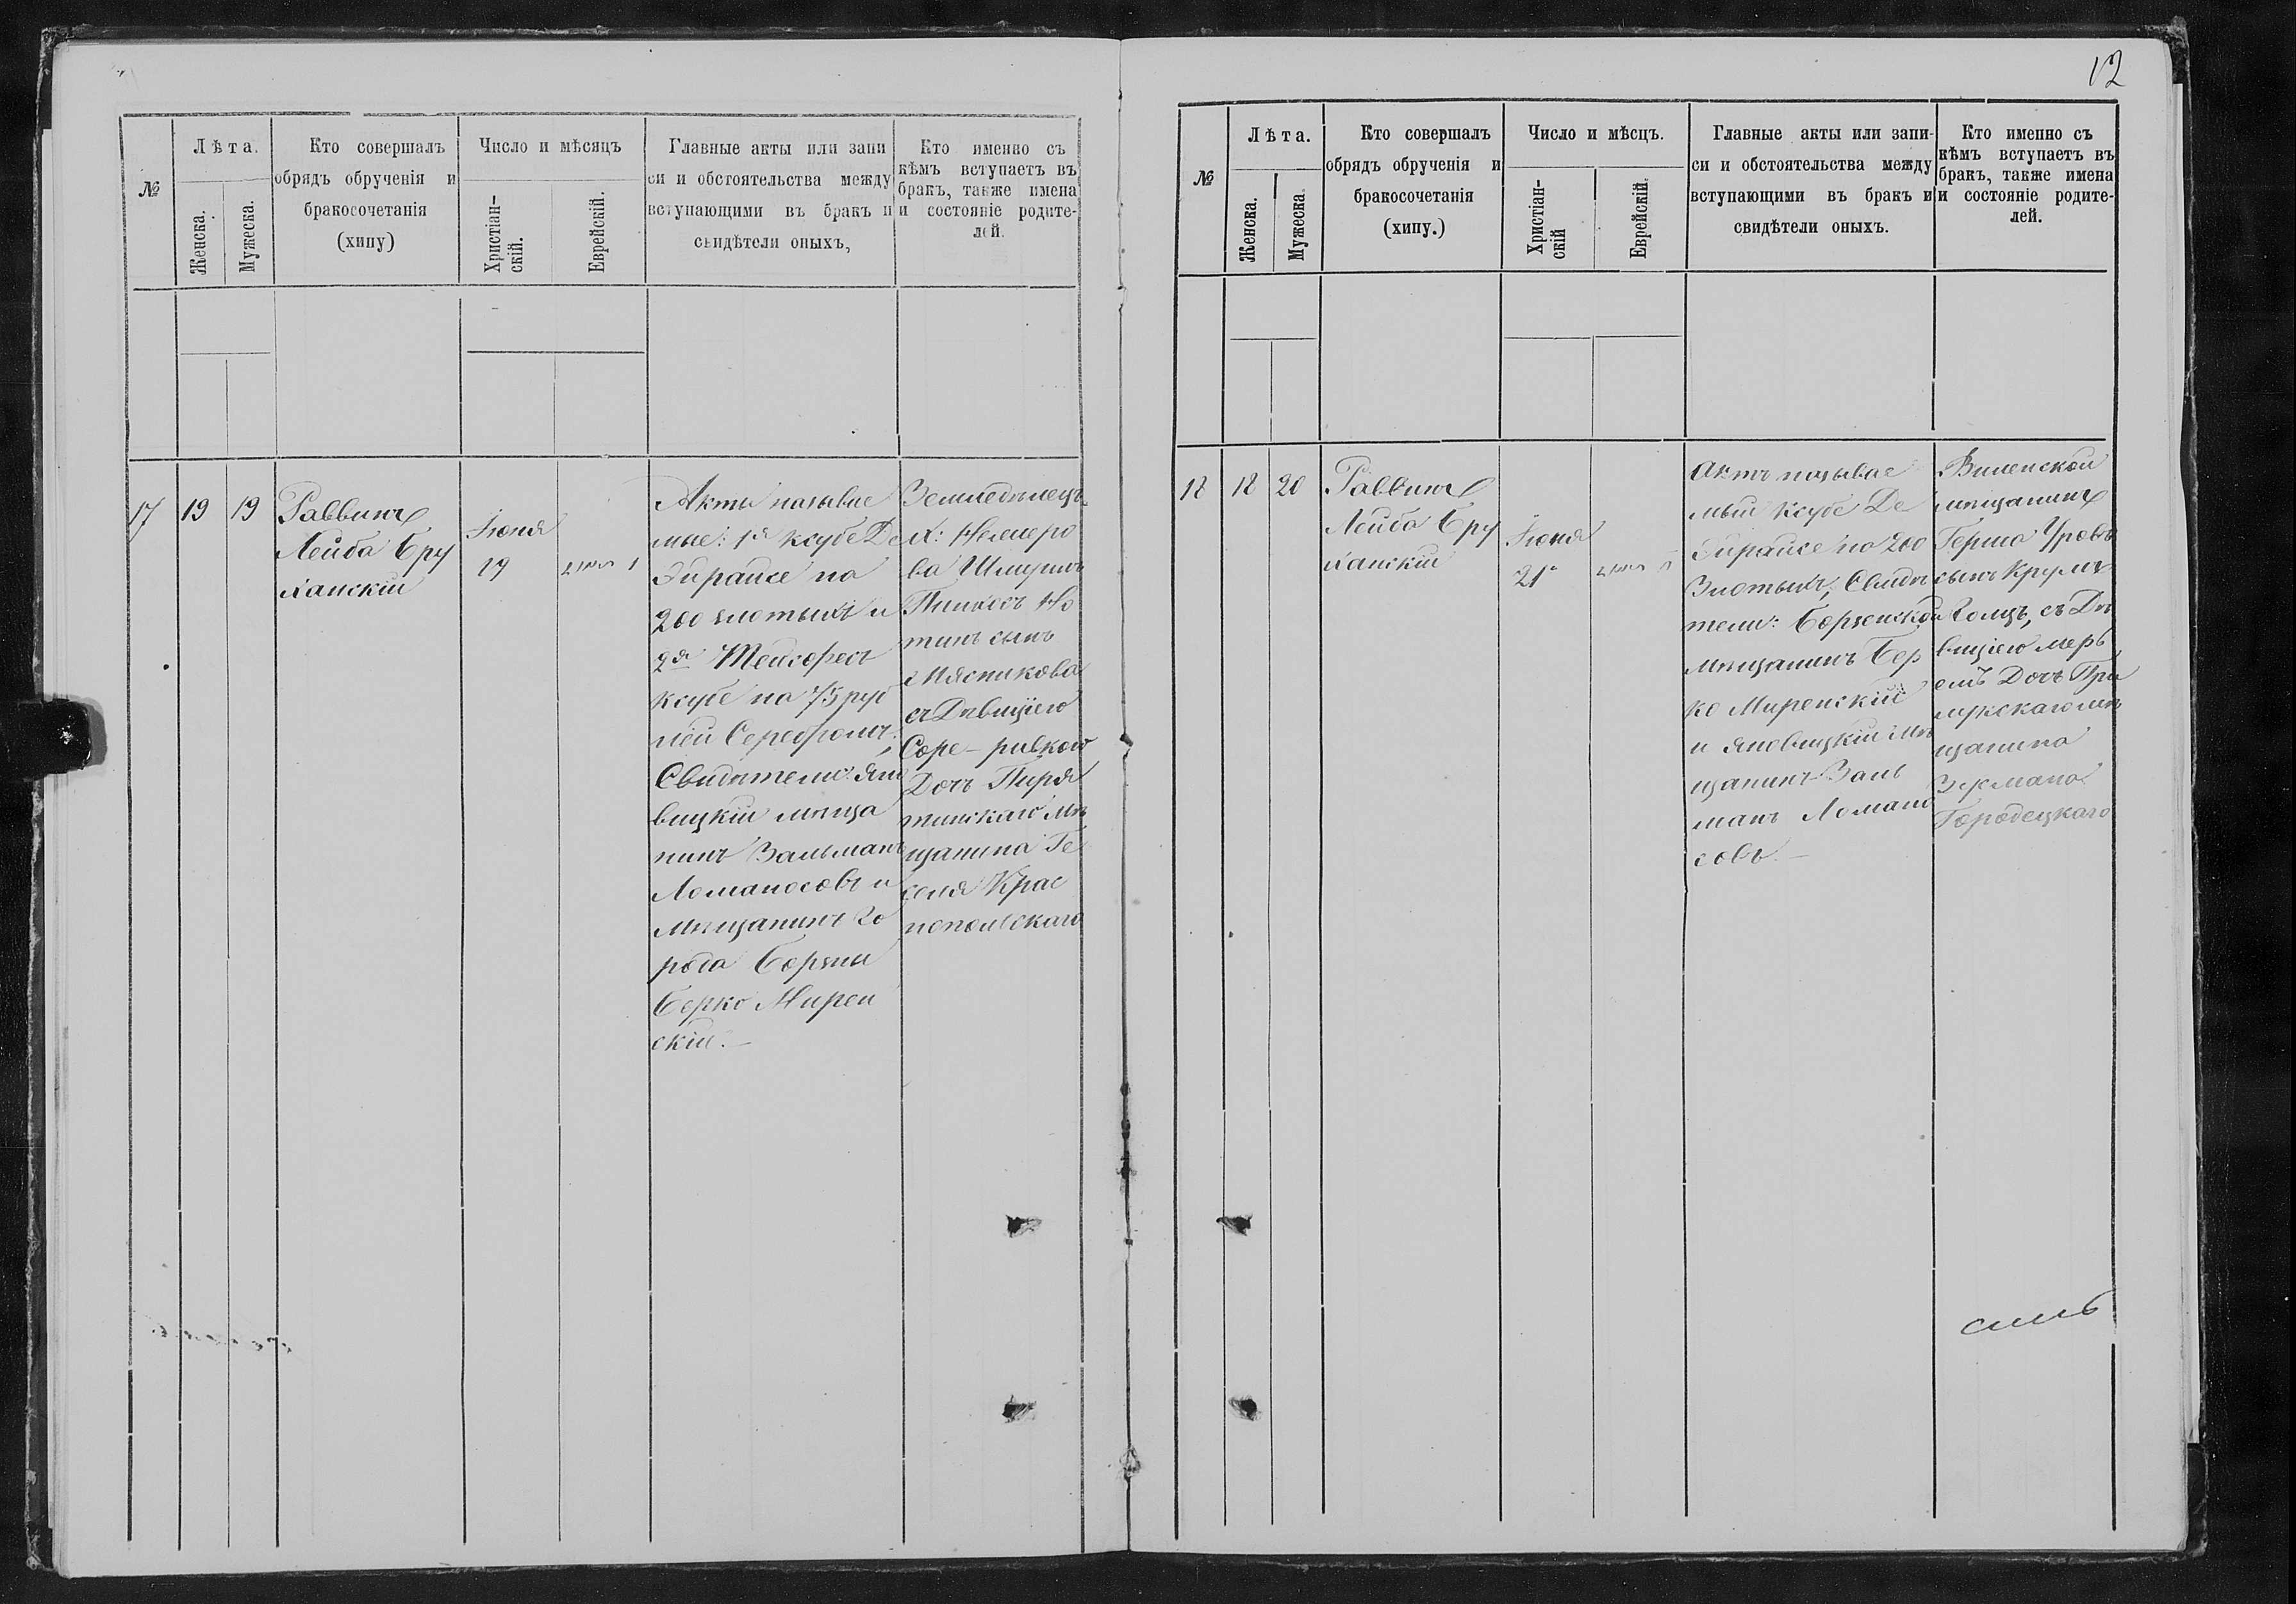 12
№
Лѣта.
Женска.
Мужеска.
Кто совершалъ
обрядъ обрученія и
бракосочетанія
(хипу)
Число и мѣсяцъ
Христіан-
скій.
Еврейскій.
Главные акты или запи
си и обстоятельства между
вступающими въ бракъ и
свидѣтели оныхъ,
Кто именно съ
кѣмъ вступаетъ въ
бракъ, также имена
и состояніе родите-
лей.
17
19
19
Раввинъ
Лейба Бру
ханскій
Іюня
19
1
Акты називае
мые: 1я Ксубе Де
Эйрайсе на
200 злотыхъ и
2я Тейсефесъ
Ксубе на 75 руб
лей Серебромъ,
Свидѣтели: Яно
вицкій мѣща
нинъ Зальманъ
Ломаносовъ и
Мѣщанинъ го
рода Борзны
Берко Мирен
скій.—
Земледѣлецъ
К: Немеро
ва Шмуил
Пинхосъ Но
тинъ сынъ
Мясникова
съ Дѣвицею
Соре-ривкою
Дочъ Пиря
тинскаго Мѣ
щанина Ге
селя Крас
нопольскаго
№
Лѣта.
Женска.
Мужеска
Кто совершалъ
обрядъ обрученія и
бракосочетанія
(хипу.)
Число и мѣсцъ.
Христіан-
скій
Еврейскій.
Главные акты или запи-
си и обстоятельства между
вступающими въ бракъ и
свидѣтели оныхъ.
Кто именно съ
кѣмъ вступаетъ въ
бракъ, также имена
и состояніе родите-
лей.
18
18
20
Раввинъ
Лейба Бру
ханскій
Іюня
21
Актъ називае
мый Ксубе Де
Эйрайсе на 200
Злотыхъ, Свидѣ
тели: Борзенской
Мѣщанинъ Бер
ко Миренскій
и Яновицкій Мѣ
щанинъ Заль
манъ Ломано
совъ.—
Виленской
мѣщанинъ
Гершо Уровъ
сынъ Крумъ
голцъ, съ Дѣ
вицею мерь
емъ Дочъ При
лукскаго мѣ
щанина
Зусмана
Городецкаго